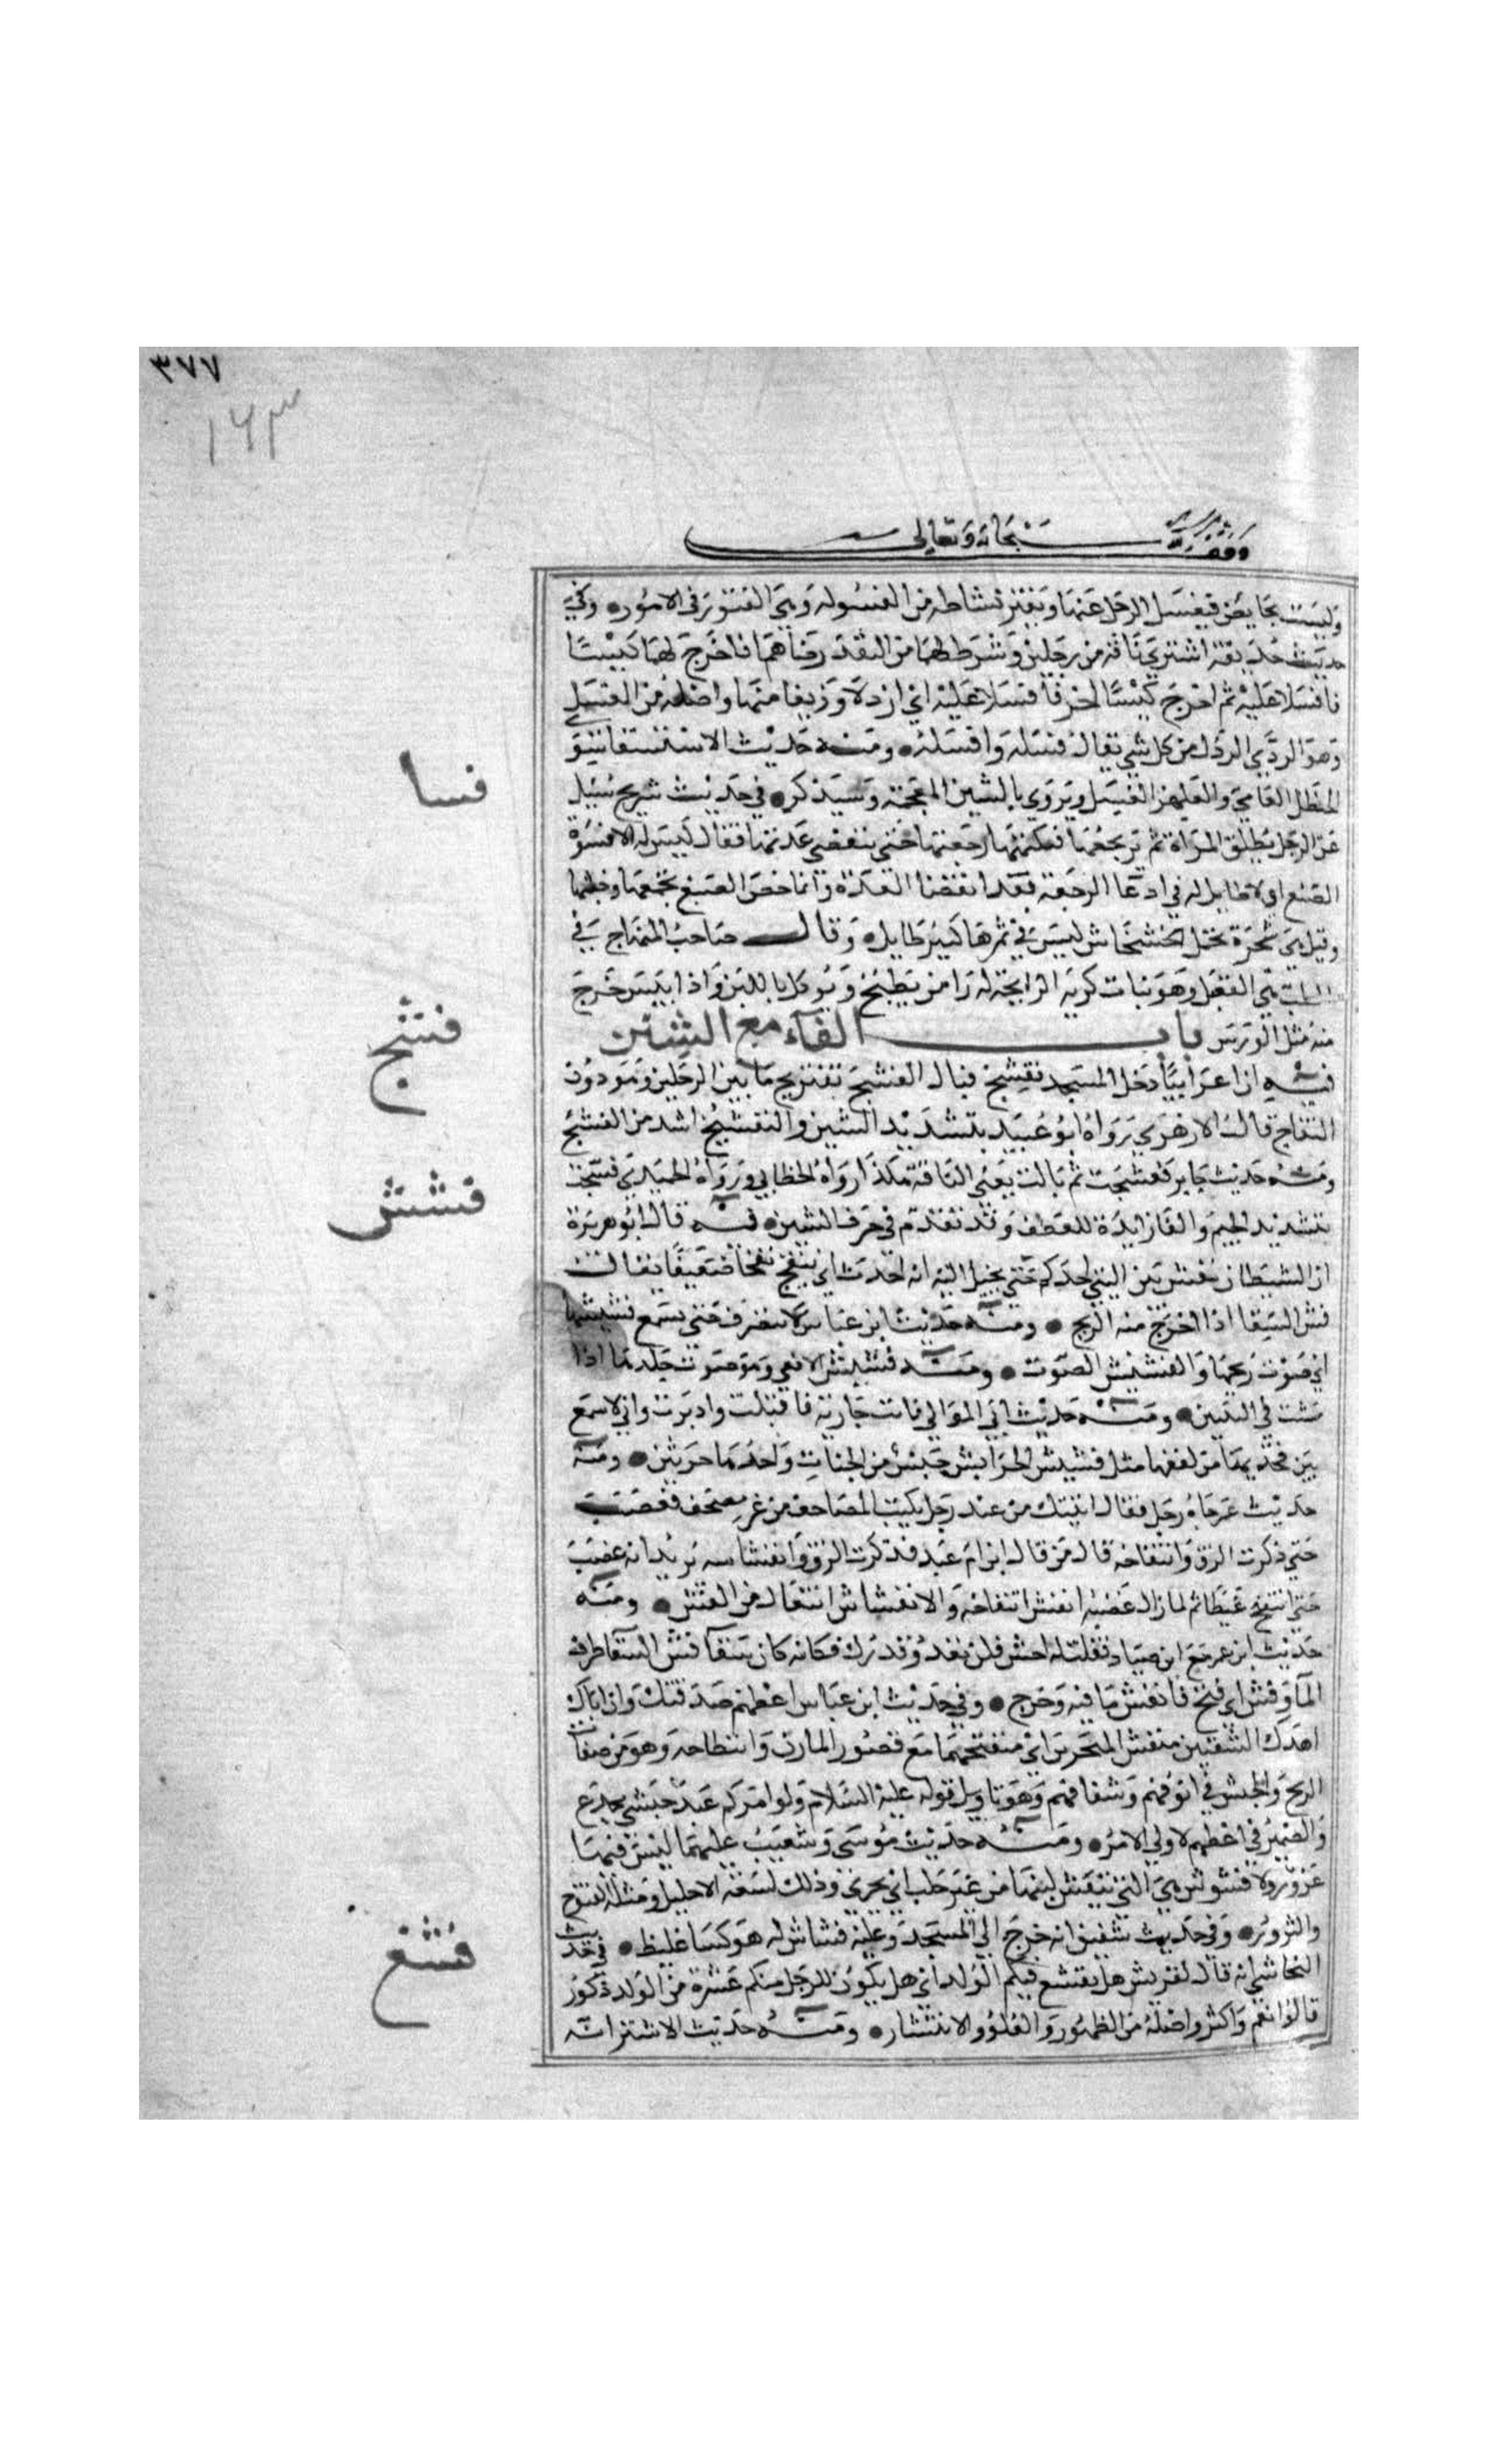 ٣٧٧
١٦٣
وقف لله سبحانه وتعالى
وليست بحايض فيفسل الرجل عنها ويفتر نشاطه من الفسولة وهي الفتور في الامور ● وفي
حديث حذيفة اشتري ناقة من رجلين وشرط لهما من النقد رضاهما فاخرج لهما كيسا
فافسلا عليه ثم اخرج كيسا اخر فافسلا عليه اي ارذلا وزيفا منها واصله من الفسل
وهو الردي الرذل من كل شي يقال فسله وافسله ● ومنه حديث الاستسقا سوى
الحنظل العامي والعلهز الفسل ويروي بالشين المعجمة وسيذكر ● في حديث شريح سئل
عن الرجل يطلق المراة ثم يرتجعها فيكتمها رجعتها حتى تنقضي عدتها فقال ليس له الا فسوة
الضبع اي لا طايل له في ادعا الرجعة بعد انقضا العدة وانما خص الضبع لحمقها وخبثها
وقيل هي شجرة تحمل الخشخاش ليس في ثمرها كبير طايل ● وقال صاحب المنهاج في
الطب هي القعبل وهو نبات كريه الرايحة له راس يطبخ ويوكل باللبن واذا يبس خرج
منه مثل الورس باب الفاء مع الشين
فيه ان اعرابيا دخل المسجد ففشج فبال الفشج تفريج ما بين الرجلين وهو دون
التفاج قال الازهري رواه ابو عبيد بتشديد الشين والتفشيج اشد من الفشج
ومنه حديث جابر ففشجت ثم بالت يعني الناقة هكذا رواه الخطابي ورواه الحميدي فشجت
بتشديد الجيم والفا زايدة للعطف وقد تقدم في حرف الشين ● فيه قال ابو هريرة
ان الشيطان يفش بين اليتي احدكم حتي يخيل اليه انه احدث اي ينفخ نفخا ضعيفا يقال
فش السقا اذا اخرج منه الريح ● ومنه حديث ابن عباس لا ينصرف حتى يسمع فشيشها
اي صوت ريحها والفشيش الصوت ● ومنه فشيش الافعي وهو صوت جلدها اذا
مشت في اليبس ● ومنه حديث ابي الموالي فاتت جارية فاقبلت وادبرت واني لاسمع
بين فخذيها من لففها مثل فشيش الحرابش جنس من الحيات واحدها حربش ● ومنه
حديث عمر جاه رجل فقال اتيتك من عند رجل يكتب المصاحف من غير مصحف فغضب
حتي ذكرت الزق وانتفاخه قال من قال ابن ام عبد فذكرت الزق وانفشاشه يريد انه غضب
حتى انتفخ غيظا ثم لما زال غضبه انفش انتفاخه والانفشاش انفعال من الفش ● ومنه
حديث ابن عمر مع ابن صياد فقلت له اخس فلن تعدو قدرك فكانه كان سقا فش السقا ظرف
الما وفش اي فتح فانفش ما فيه وخرج ● وفي حديث ابن عباس اعطهم صدقتك وان اتاك
اهدل الشفتين منفش المنخرين اي منفتحهما مع قصور المارن وانبطاحه وهو من صفات
الزنج والحبش في انوفهم وشفاههم وهو تاويل قوله عليه السلام ولو امر عليكم عبد حبشي مجدع
والضمير في اعطهم لاولي الامر ● ومنه حديث موسى وشعيب عليهما ليس فيها
عزوز ولا فشوش هي التي ينفش لبنها من غير حلب اي يجري وذلك لسعة الاحليل ومثله الفتوح
والثرور ● وفي حديث شقيق انه خرج الى المسجد وعليه فشاش له هو كسا غليظ ● في حديث
النجاشي انه قال لقريش هل يفشغ فيكم الولد اي هل يكون للرجل منكم عشرة من الولد ذكور
قالوا نعم واكثر واصله من الظهور والعلو والانتشار ● ومنه حديث الاشتر انه
فسا
فشج
فشش
فشغ